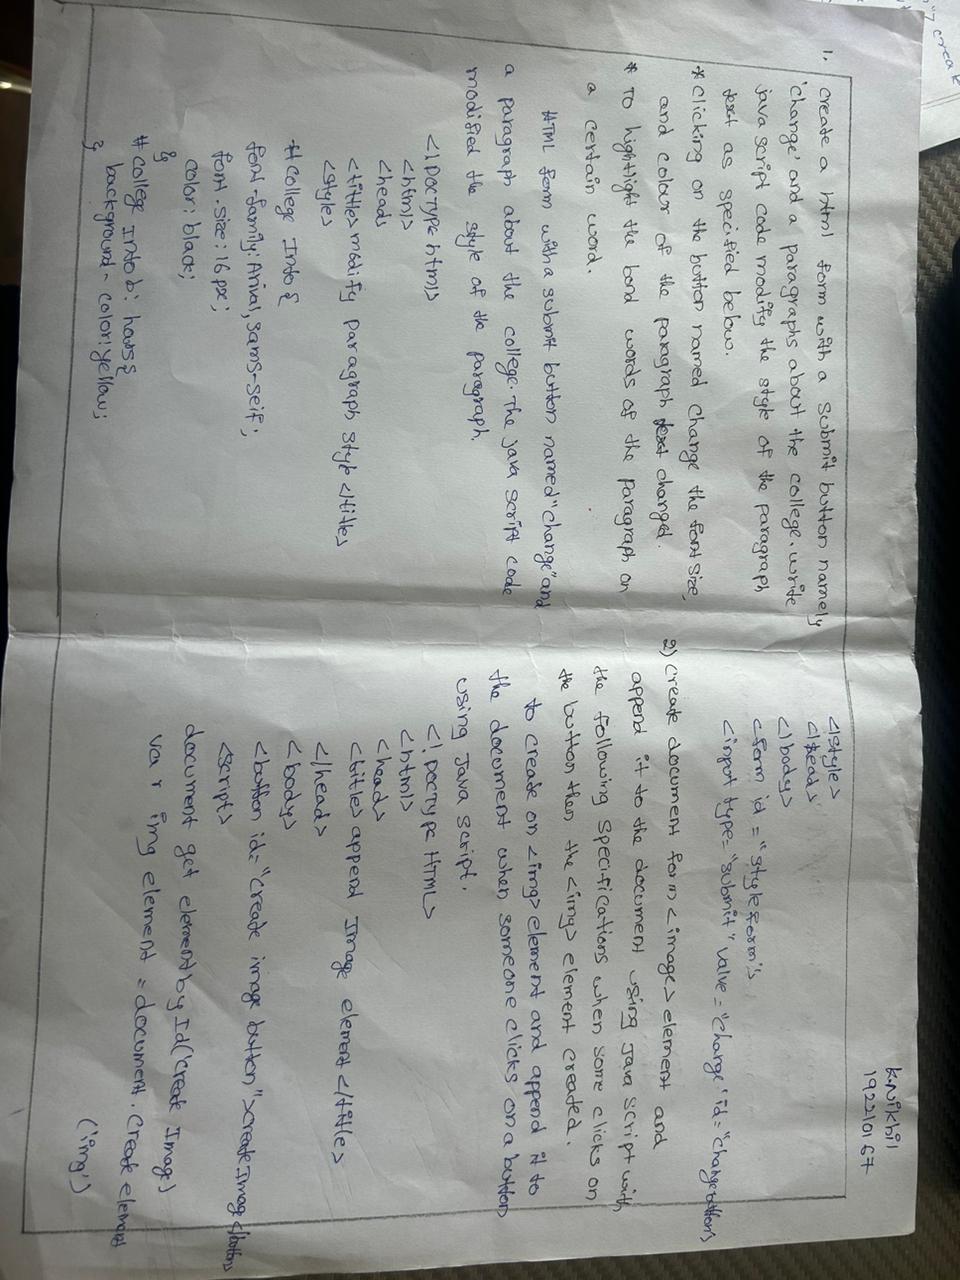 1. create a html form with a submit button namely
'change' and a paragraphs about the college. write
java script code modify the style of the paragraph
text as specified below.
* clicking on the button named change the font size,
and color of the paragraph text changed.
* To hightlight the bond words of the paragraph on
a certain word.
HTML form with a submit button named "change" and
a paragraph about the college. The java script code
modified the style of the paragraph.
<!DOCTYPE html>
<html>
<head>
<title>modify paragraph style </title>
<style>
# college Into {
font-family: Arival, sams-seif;
font.size: 16 px;
color: black;
}
# college Into b: hovrs {
background- color: yellow;
}
K Nikhil
192210167
</style>
</head>
</body>
<form id = "style form">
<input type= "submit" value = "change" id= "change button">
2) create document form <image> element and
append it to the document using Java script with
the following specifications when some clicks on
the button then the <img> element created.
to create on <img> element and append it to
the document when someone clicks on a button
using Java script.
<! DOCTYPE HTML>
<html>
<head>
<title> append Image element </title>
</head>
<body>
<button id= "create image button">create Image </button>
<script>
document get element by Id('create Image)
var img element = document. create element
('img')
7 creak